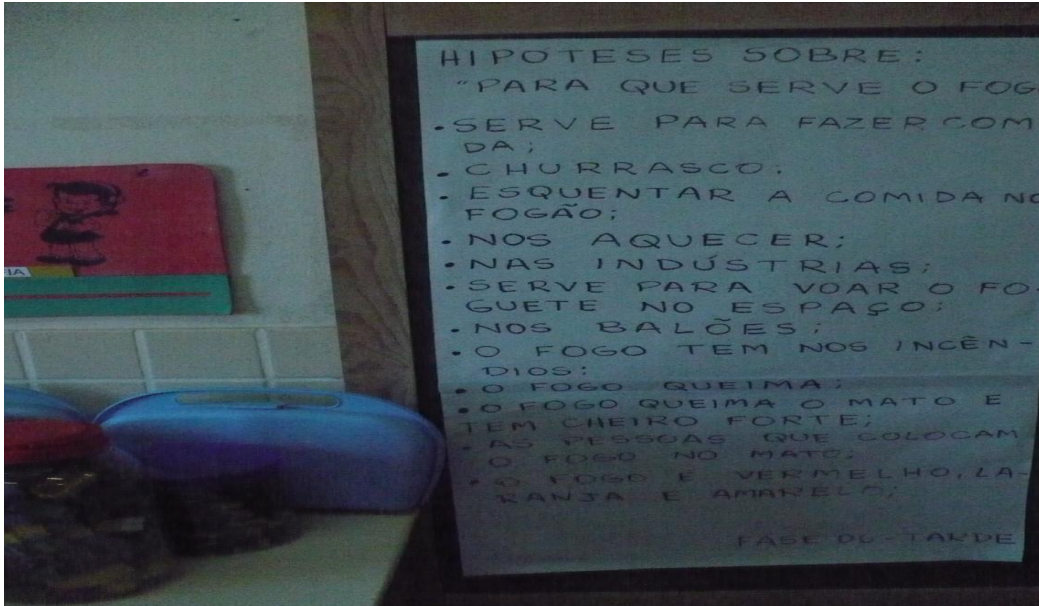 HIPOTESES SOBRE:
"PARA QUE SERVE O FOG
•SERVE PARA FAZER COM
DA;
•CHURRASCO;
•ESQUENTAR A COMIDA NO
FOGÃO;
•NOS AQUECER;
•NAS INDÚSTRIAS;
•SERVE PARA VOAR O FO-
GUETE NO ESPAÇO;
•NOS BALÕES;
•O FOGO TEM NOS INCÊN-
DIOS;
•O FOGO QUEIMA;
•O FOGO QUEIMA O MATO E
TEM CHEIRO FORTE;
•AS PESSOAS QUE COLOCAM
O FOGO NO MATO;
•O FOGO É VERMELHO, LA-
RANJA E AMARELO;
FASE - TARDE
FIA